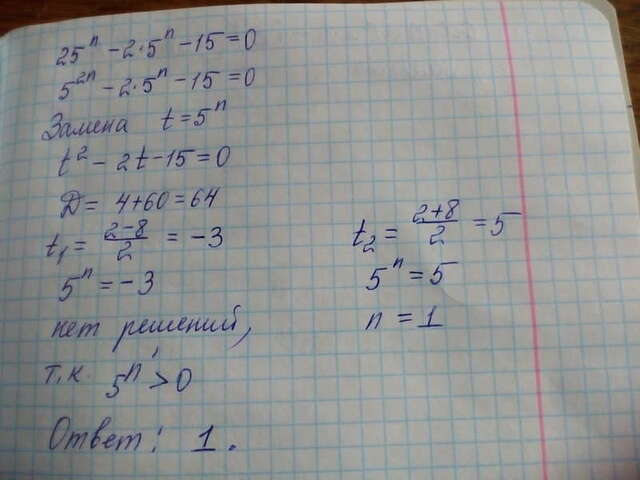 25ⁿ - 2·5ⁿ - 15 = 0
5²ⁿ - 2·5ⁿ - 15 = 0
Замена t = 5ⁿ
t² - 2t - 15 = 0
D = 4 + 60 = 64
t₁ = (2-8)/2 = -3
5ⁿ = -3
нет решений,
т.к. 5ⁿ > 0
t₂ = (2+8)/2 = 5
5ⁿ = 5
n = 1
Ответ: 1.